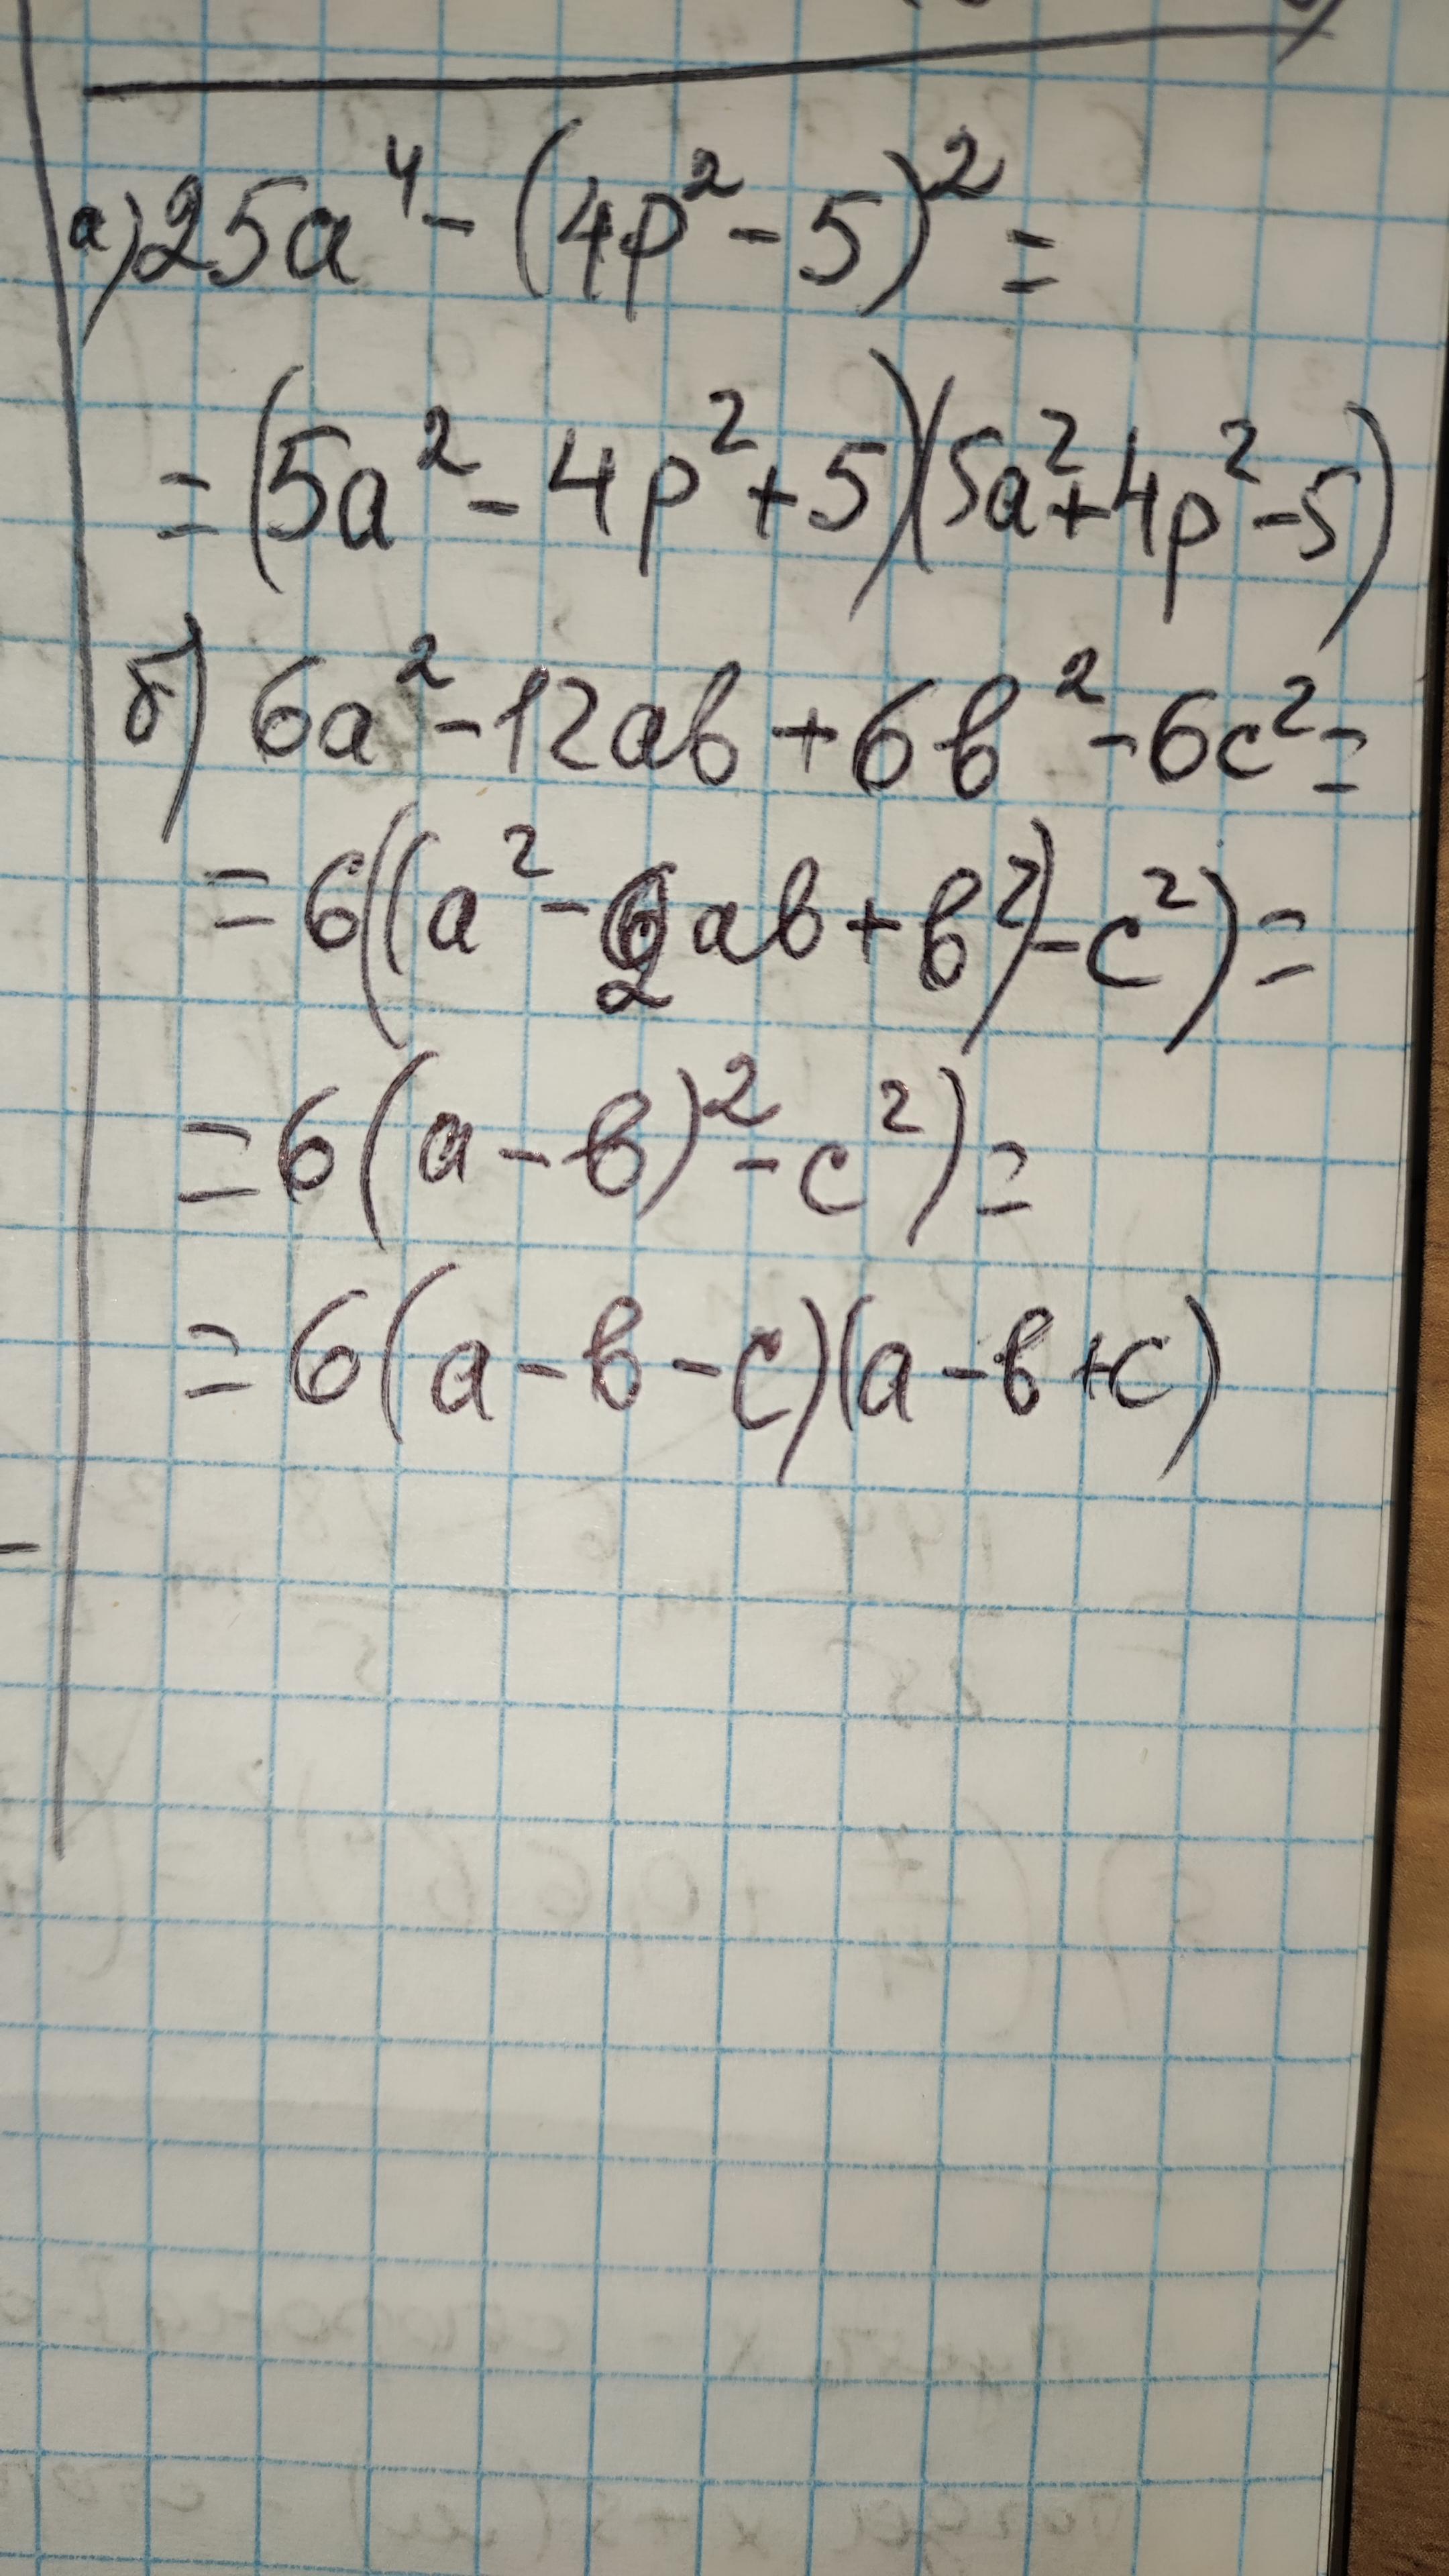 а) 25a⁴ - (4p² - 5)² =
= (5a² - 4p² + 5)(5a² + 4p² - 5)
б) 6a² - 12ab + 6b² - 6c² =
= 6((a² - 2ab + b²) - c²) =
= 6(a - b)² - c²) =
= 6(a - b - c)(a - b + c)